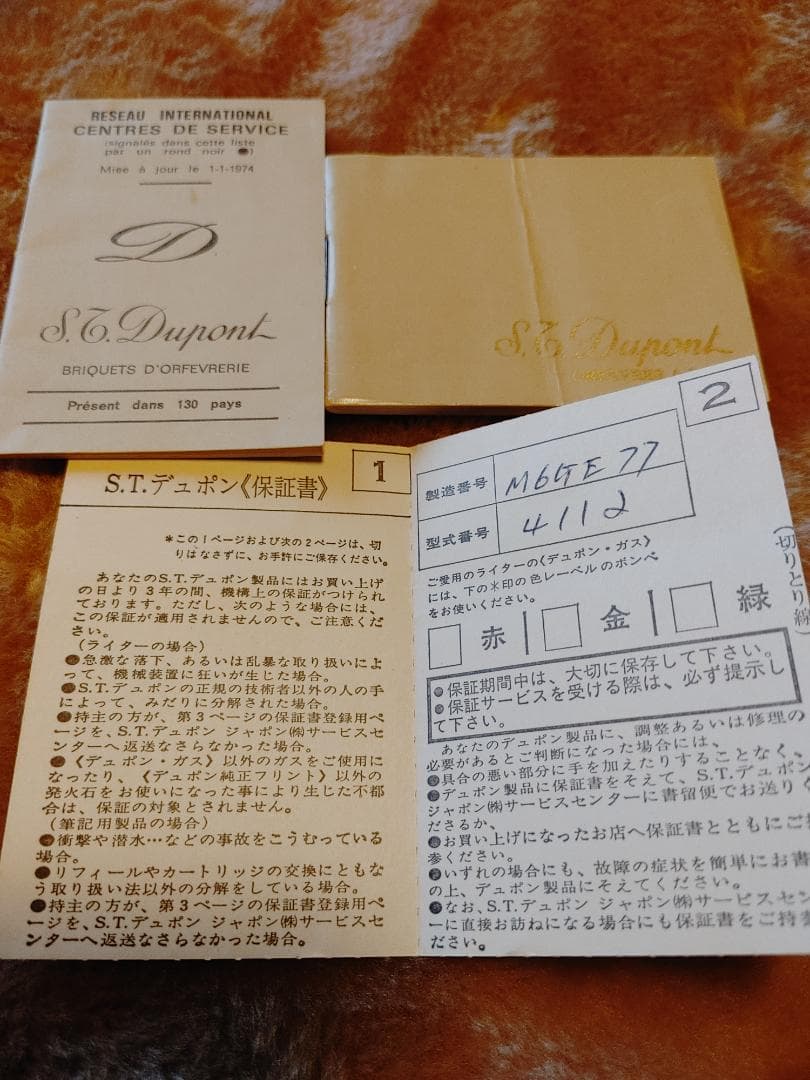 RESEAU INTERNATIONAL
CENTRES DE SERVICE
(signalés dans cette liste
par un rond noir ●)
Mise à jour le 1-1-1974
D
S.T. Dupont
BRIQUETS D'ORFEVRERIE
Présent dans 130 pays
S.T. Dupont
S.T.デュポン《保証書》
1
*この1ページおよび次の2ページは、切
りはなさずに、お手許にご保存ください。
あなたのS.T.デュポン製品にはお買い上げ
の日より3年の間、機構上の保証がつけられ
ております。ただし、次のような場合には、
この保証が適用されませんので、ご注意くだ
さい。
(ライターの場合)
●急激な落下、あるいは乱暴な取り扱いによ
って、機械装置に狂いが生じた場合。
●S.T.デュポンの正規の技術者以外の人の手
によって、みだりに分解された場合。
●持主の方が、第3ページの保証書登録用ペ
ージを、S.T.デュポン ジャポン㈱サービスセ
ンターへ返送なさらなかった場合。
●《デュポン・ガス》以外のガスをご使用に
なったり、《デュポン純正フリント》以外の
発火石をお使いになった事により生じた不都
合は、保証の対象とされません。
(筆記用製品の場合)
●衝撃や潜水…などの事故をこうむっている
場合。
●リフィールやカートリッジの交換にともな
う取り扱い法以外の分解をしている場合。
●持主の方が、第3ページの保証書登録用ペ
ージを、S.T.デュポン ジャポン㈱サービスセ
ンターへ返送なさらなかった場合。
2
製造番号 M6GE77
型式番号 4112
ご愛用のライターの《デュポン・ガス》
には、下の*印の色レーベルのボンベ
をお使いください。
赤 金 緑
●保証期間中は、大切に保存して下さい。
●保証サービスを受ける際は、必ず提示し
て下さい。
(切りとり線)
あなたのデュポン製品に、調整あるいは修理の
必要があるとご判断になった場合には、
●具合の悪い部分に手を加えたりすることなく、
●デュポン製品に保証書をそえて、S.T.デュポン
ジャポン㈱サービスセンターに書留便でお送りく
ださるか、
●お買い上げになったお店へ保証書とともにご持
参ください。
●いずれの場合にも、故障の症状を簡単にお書
の上、デュポン製品にそえてください。
●なお、S.T.デュポン ジャポン㈱サービスセン
ーに直接お訪ねになる場合にも保証書をご持参
ださい。